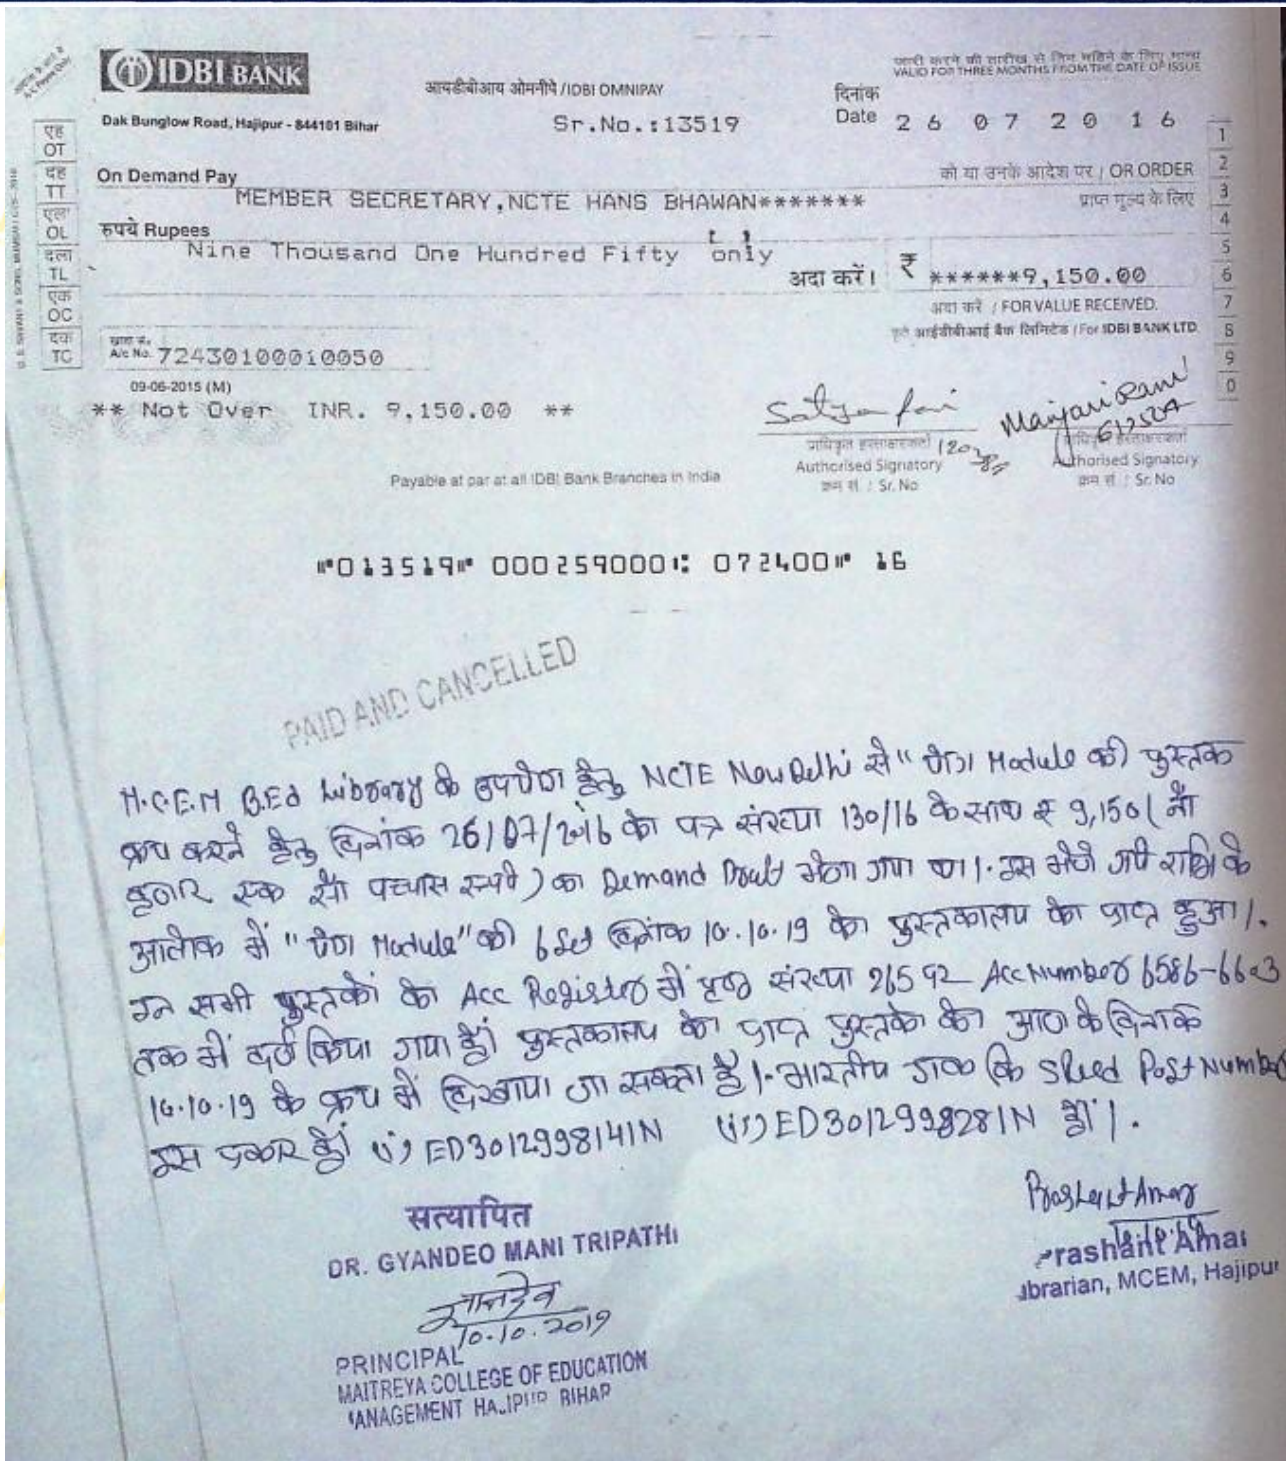 IDBI BANK
आयडीबीआय ओमनीपे /IDBI OMNIPAY
VALID FOR THREE MONTHS FROM THE DATE OF ISSUE
Dak Bunglow Road, Hajipur - 844101 Bihar
Sr.No.:13519
दिनांक
Date 2 6 0 7 2 0 1 6
On Demand Pay
को या उनके आदेश पर / OR ORDER
MEMBER SECRETARY,NCTE HANS BHAWAN*******
प्राप्त मूल्य के लिए
रुपये Rupees
Nine Thousand One Hundred Fifty only
अदा करें। ₹ ******9,150.00
अदा करें / FOR VALUE RECEIVED.
कृते आईडीबीआई बैंक लिमिटेड / For IDBI BANK LTD.
एह
OT
दह
TT
एल
OL
दला
TL
एक
OC
दक
TC
1
2
3
4
5
6
7
8
9
0
खाता सं.
A/c No. 72430100010050
09-06-2015 (M)
** Not Over INR. 9,150.00 **
Manjari Rani
प्राधिकृत हस्ताक्षरकर्ता
Authorised Signatory
क्रम सं. / Sr. No
Authorised Signatory
क्रम सं. / Sr. No
Payable at par at all IDBI Bank Branches in India
⑈013519⑈ 000259000⑆ 072400⑈ 16
PAID AND CANCELLED
M.C.E.M B.Ed Library के उपयोग हेतु NCTE New Delhi से "योग Module की पुस्तक
क्रय करने हेतु दिनांक 26/07/2016 को पत्र संख्या 130/16 के साथ ₹ 9,150 (नौ
हजार एक सौ पच्चास रूपये) का Demand Draft भेजा गया था।. इस भेजे गये राशि के
आलोक में "योग Module" की 6 Set दिनांक 10.10.19 को पुस्तकालय को प्राप्त हुआ।.
इन सभी पुस्तकों को Acc Register में पृष्ठ संख्या 265 92 Acc Number 6586-6603
तक में दर्ज किया गया है। पुस्तकालय को प्राप्त पुस्तको को आज के दिनांक
10.10.19 के क्रय में दिखाया जा सकता है।. भारतीय डाक कि Speed Post Number
इस प्रकार हैं (i) ED301299814IN (ii) ED301299828IN हैं।.
सत्यापित
DR. GYANDEO MANI TRIPATHI
ज्ञानदेव
10.10.2019
PRINCIPAL
MAITREYA COLLEGE OF EDUCATION
MANAGEMENT HAJIPUR BIHAR
Prashant Amar
Prashant Amar
Librarian, MCEM, Hajipur